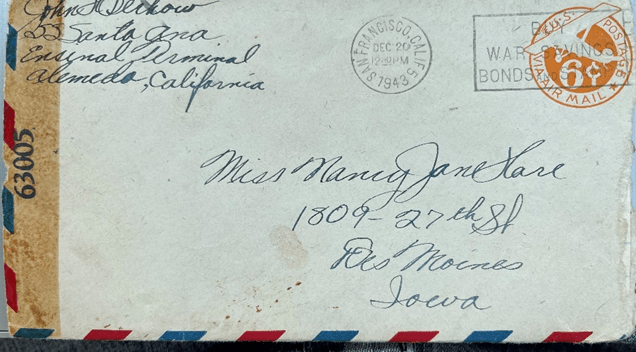 John
SS Santa Ana
Encinal Terminal
Alameda, California
63005
SAN FRANCISCO, CALIF. 5
DEC 20
1943
BUY
WAR SAVINGS
BONDS AND
U.S. POSTAGE
6¢
VIA AIR MAIL
Miss Nancy Jane Hare
1809 - 27th St.
Des Moines
Iowa